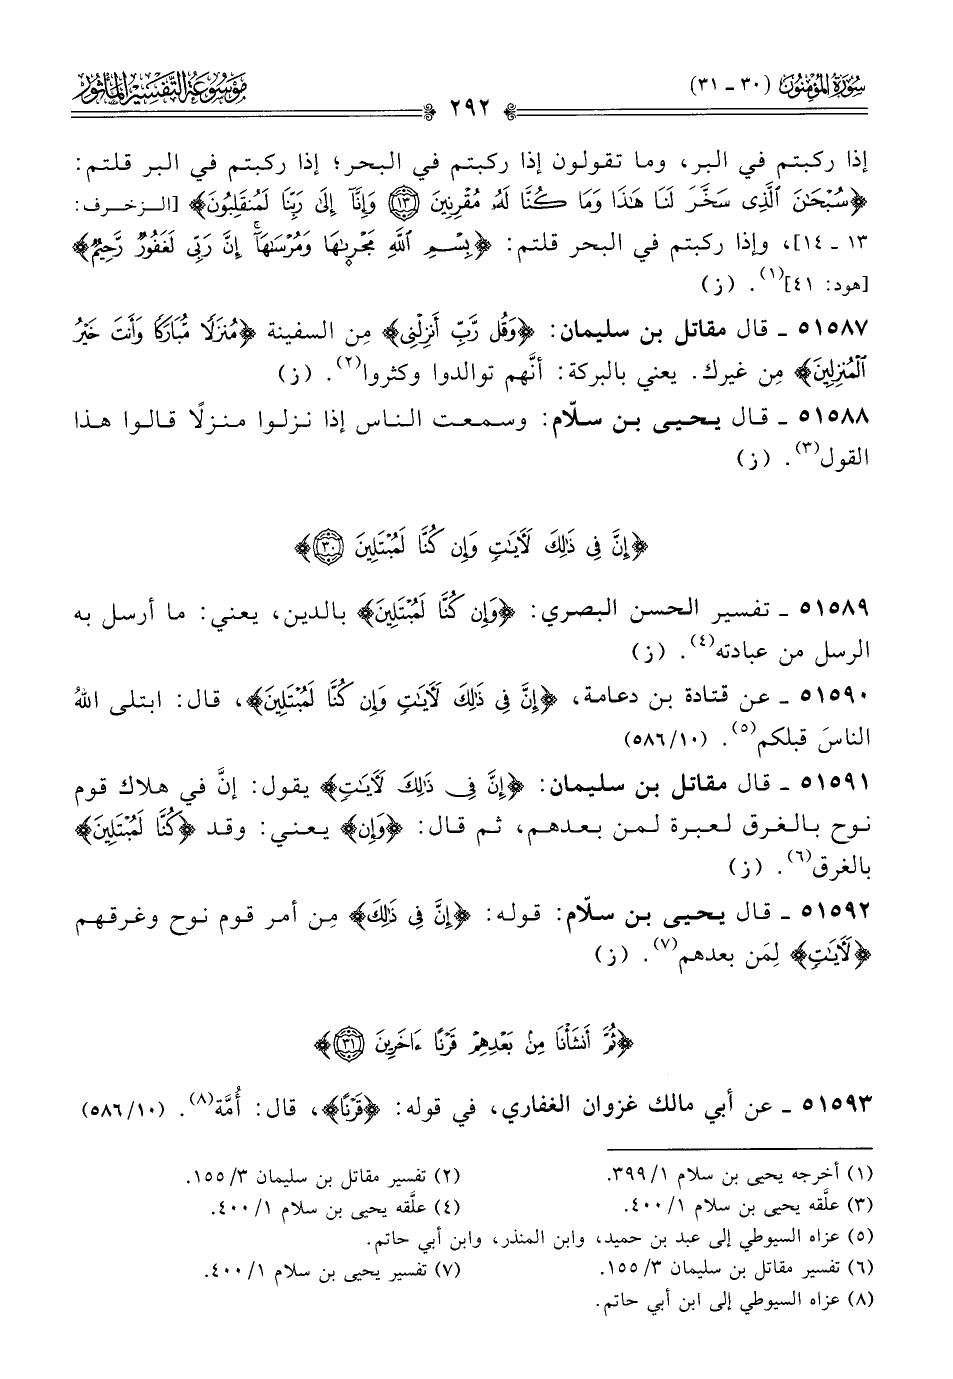 سُورَةُ المُؤْمِنُونَ (٣٠ - ٣١)
٢٩٢
مَوْسُوعَةُ التَّفْسِيرِ المَأْثُورِ
إذا ركبتم في البر، وما تقولون إذا ركبتم في البحر؛ إذا ركبتم في البر قلتم:
﴿سُبْحَٰنَ ٱلَّذِى سَخَّرَ لَنَا هَٰذَا وَمَا كُنَّا لَهُۥ مُقْرِنِينَ ١٣ وَإِنَّآ إِلَىٰ رَبِّنَا لَمُنقَلِبُونَ﴾ [الزخرف:
١٣ - ١٤]، وإذا ركبتم في البحر قلتم: ﴿بِسْمِ ٱللَّهِ مَجْر۪ىٰهَا وَمُرْسَىٰهَآ ۚ إِنَّ رَبِّى لَغَفُورٌ رَّحِيمٌ﴾
[هود: ٤١](١). (ز)
٥١٥٨٧ - قال مقاتل بن سليمان: ﴿وَقُل رَّبِّ أَنزِلْنِى﴾ مِن السفينة ﴿مُنزَلًا مُّبَارَكًا وَأَنتَ خَيْرُ
ٱلْمُنزِلِينَ﴾ مِن غيرك. يعني بالبركة: أنَّهم توالدوا وكثروا(٢). (ز)
٥١٥٨٨ - قال يحيى بن سلّام: وسمعت الناس إذا نزلوا منزلًا قالوا هذا
القول(٣). (ز)
﴿إِنَّ فِى ذَٰلِكَ لَءَايَٰتٍ وَإِن كُنَّا لَمُبْتَلِينَ ٣٠﴾
٥١٥٨٩ - تفسير الحسن البصري: ﴿وَإِن كُنَّا لَمُبْتَلِينَ﴾ بالدين، يعني: ما أرسل به
الرسل من عبادته(٤). (ز)
٥١٥٩٠ - عن قتادة بن دعامة، ﴿إِنَّ فِى ذَٰلِكَ لَءَايَٰتٍ وَإِن كُنَّا لَمُبْتَلِينَ﴾، قال: ابتلى اللهُ
الناسَ قبلكم(٥). (١٠/٥٨٦)
٥١٥٩١ - قال مقاتل بن سليمان: ﴿إِنَّ فِى ذَٰلِكَ لَءَايَٰتٍ﴾ يقول: إنَّ في هلاك قوم
نوح بالغرق لعبرة لمن بعدهم، ثم قال: ﴿وَإِن﴾ يعني: وقد ﴿كُنَّا لَمُبْتَلِينَ﴾
بالغرق(٦). (ز)
٥١٥٩٢ - قال يحيى بن سلّام: قوله: ﴿إِنَّ فِى ذَٰلِكَ﴾ مِن أمر قوم نوح وغرقهم
﴿لَءَايَٰتٍ﴾ لِمَن بعدهم(٧). (ز)
﴿ثُمَّ أَنشَأْنَا مِنۢ بَعْدِهِمْ قَرْنًا ءَاخَرِينَ ٣١﴾
٥١٥٩٣ - عن أبي مالك غزوان الغفاري، في قوله: ﴿قَرْنًا﴾، قال: أُمَّة(٨). (١٠/٥٨٦)
(١) أخرجه يحيى بن سلام ١/ ٣٩٩.
(٢) تفسير مقاتل بن سليمان ٣/ ١٥٥.
(٣) علَّقه يحيى بن سلام ١/ ٤٠٠.
(٤) علَّقه يحيى بن سلام ١/ ٤٠٠.
(٥) عزاه السيوطي إلى عبد بن حميد، وابن المنذر، وابن أبي حاتم.
(٦) تفسير مقاتل بن سليمان ٣/ ١٥٥.
(٧) تفسير يحيى بن سلام ١/ ٤٠٠.
(٨) عزاه السيوطي إلى ابن أبي حاتم.